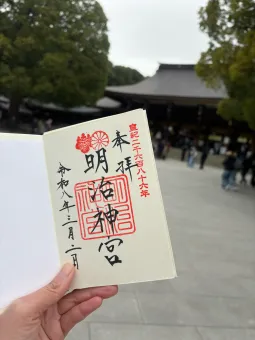 皇紀二千六百八十六年
奉拝
明治神宮
令和八年三月二日